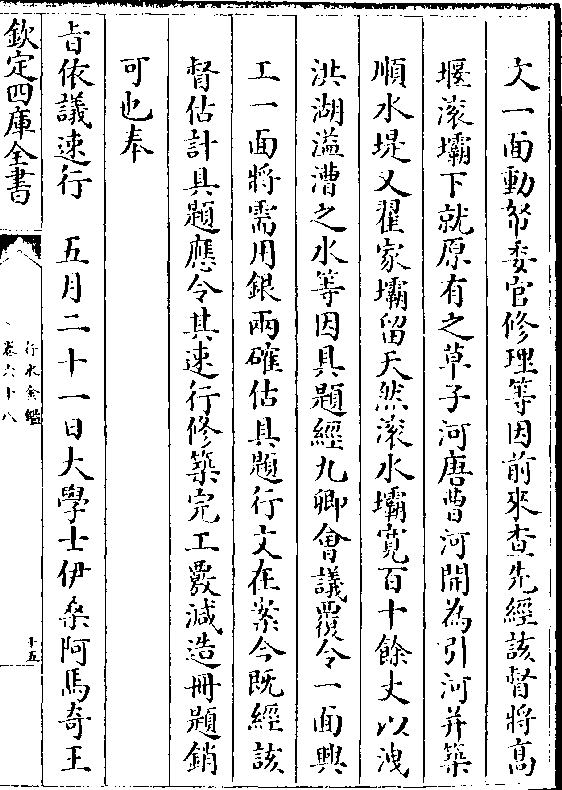 文一面動帑委官修理等因前來查先經該督將高
堰滚壩下就原有之草子河唐曹河開為引河并築
順水堤又翟家壩留天然滚水壩寛百十餘丈以洩
洪湖溢漕之水等因具題經九卿會議覆令一面興
工一面將需用銀兩確估具題行文在案今既經該
督估計具題應令其速行修築完工覈減造冊題銷
可也奉
㫖依議速行　五月二十一日大學士伊桑阿馬奇王
欽定四庫全書
行水金鑑
卷六十八
十五